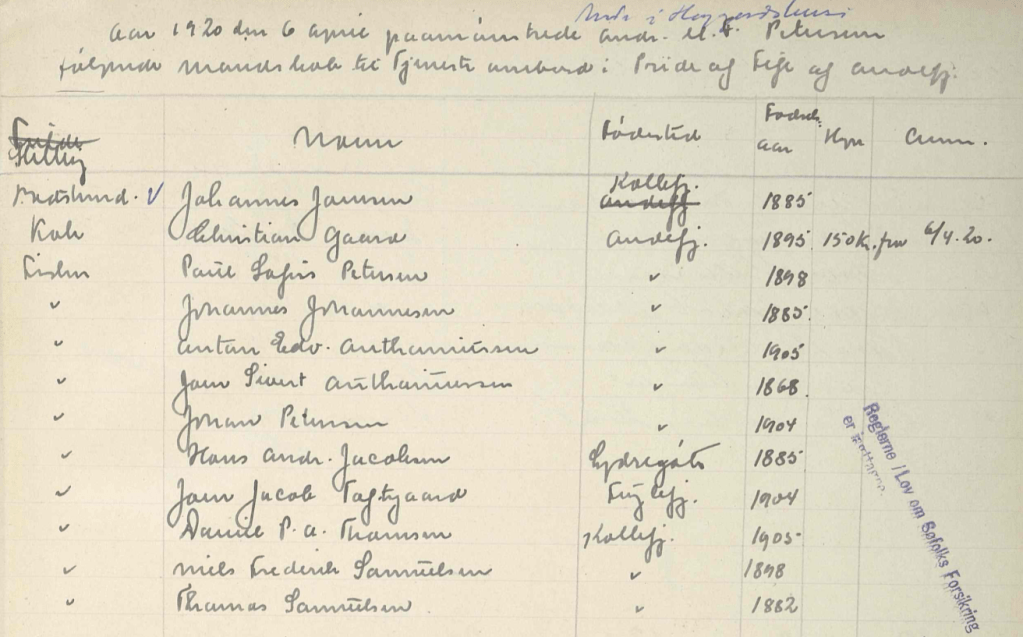 i
Aar 1920 den 6 april paamönstrede Andr. M. A. Petersen
følgende mandskab til Tjeneste ombord i Pride af Fugl og Andefj.
Stilling Navn Födested Födsels aar Hyre Anm.
Johannes Joensen Andefj Kollefj. 1885
Kok Christian Gaard Andefj. 1895 150 Kr. fra 6/4.20.
Fisker Paul Sofus Petersen " 1898
" Johannes Johannesen " 1885
" Anton Edv. Anthoniussen " 1905
" Joen Sivert Anthoniussen " 1868
" Johan Petersen " 1904
" Hans Andr. Jacobsen Sydregöte 1885
" Joen Jacob Toftegaard Fuglefj. 1904
" Daniel P. A. Thomsen Kollefj. 1905
" Niels Frederik Samuelsen " 1898
" Thomas Samuelsen " 1882
Reglerne i Lov om Søfolks Forsikring
er